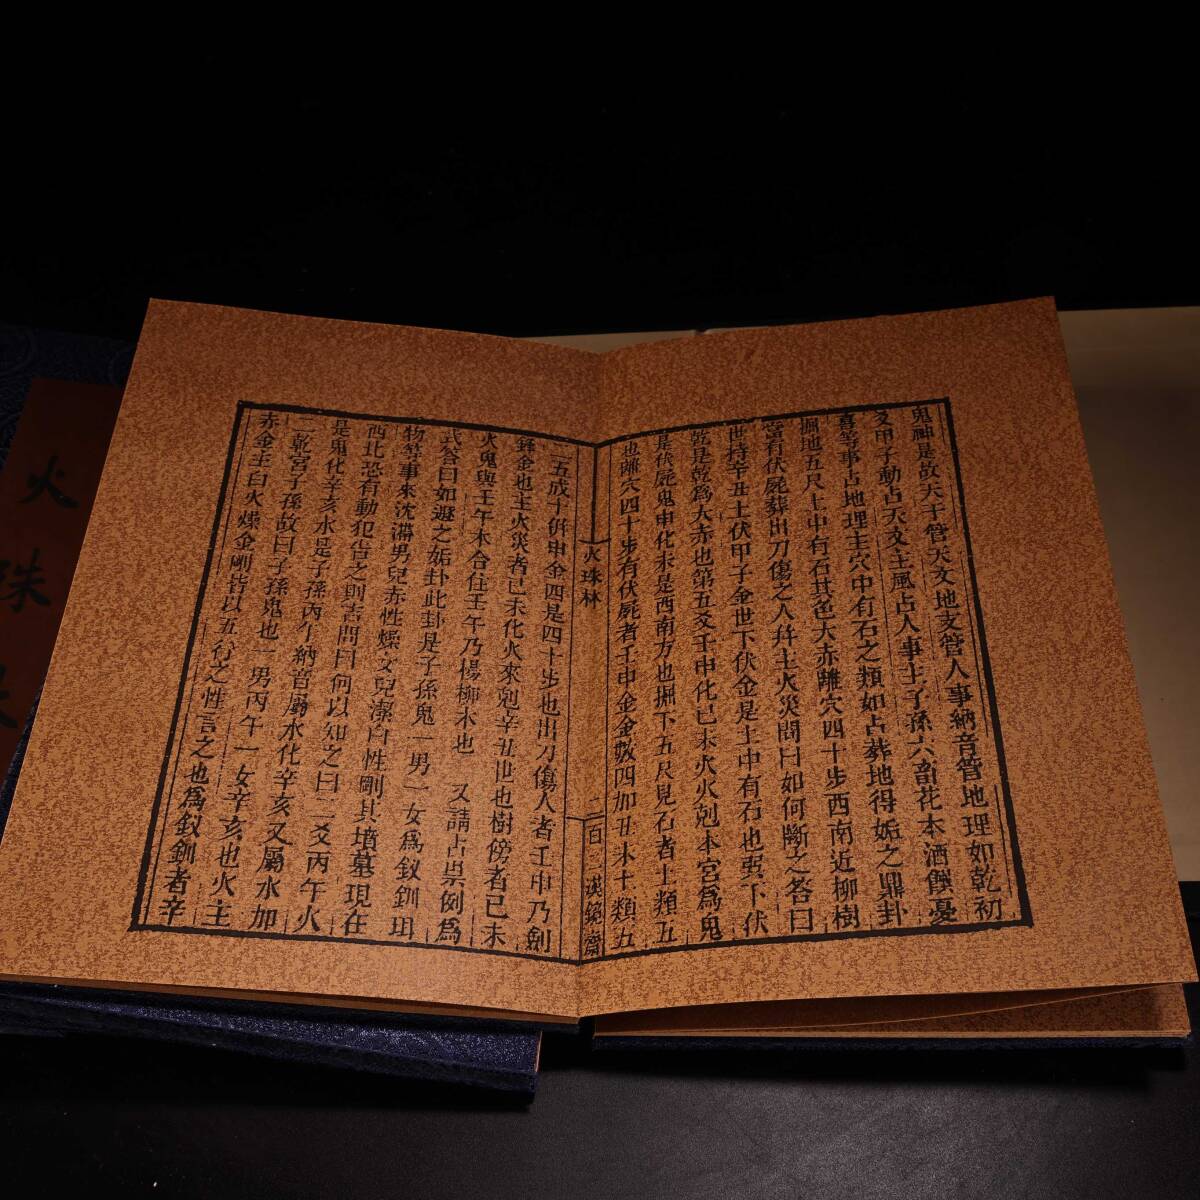 鬼神是故天干管天文地支管人事納音管地理如乾初
爻甲子動占天文主風占人事主子孫六畜花木酒饌憂
喜等事占地理主穴中有石之類如占葬地得姤之鼎卦
掘地五尺土中有石其色大赤離穴四十步西南近柳樹
當有伏屍葬出刀傷之人并土火災問曰如何斷之答曰
世持辛丑土伏甲子金世下伏金是土中有石也巽下伏
乾是乾為大赤也第五爻壬申化已未火火剋本宮為鬼
是伏屍鬼申化未是西南方也掘下五尺見石者土類五
也離穴四十步有伏屍者壬申金金數四加丑未土類五
火珠林
二百三
漢鏡齋
二五成十併申金四是四十步也出刀傷人者壬申乃劍
鋒金也主火災者已未化火來剋辛丑世也樹傍者已未
火鬼與壬午木合住壬午乃楊柳木也 又請占祟例為
式答曰如遯之姤卦此卦是子孫鬼一男一女為釵釧珥
物等事來沈滯男兒赤性燥女兒潔白性剛其墳墓現在
西北恐有動犯告之則吉問曰何以知之曰二爻丙午火
是鬼化辛亥水是子孫丙午納音屬水化辛亥又屬水加
二乾宮子孫故曰子孫鬼也一男丙午一女辛亥也火主
赤金主白火燥金剛皆以五行之性言之也為釵釧者辛
火
珠